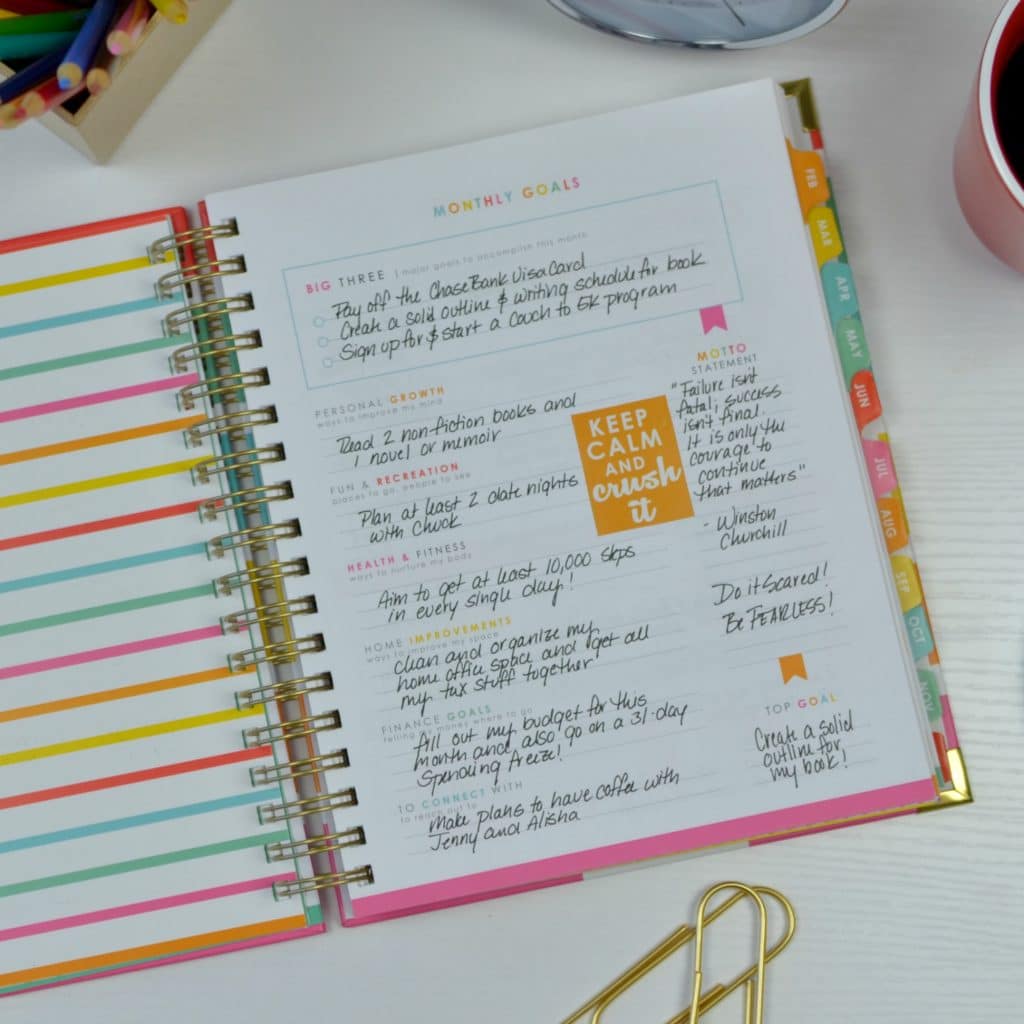 MONTHLY GOALS
BIG THREE | major goals to accomplish this month
Pay off the Chase Bank Visa Card
Create a solid outline & writing schedule for book
Sign up for & start a Couch to 5K program
PERSONAL GROWTH
ways to improve my mind
Read 2 non-fiction books and
1 novel or memoir
FUN & RECREATION
places to go, people to see
Plan at least 2 date nights
with Chuck
HEALTH & FITNESS
ways to nurture my body
Aim to get at least 10,000 steps
in every single day!
HOME IMPROVEMENTS
ways to improve my space
clean and organize my
home office space and get all
my tax stuff together
FINANCE GOALS
telling my money where to go
fill out my budget for this
month and also go on a 31-day
Spending freeze!
TO CONNECT WITH
to reach out to
Make plans to have coffee with
Jenny and Alisha
KEEP
CALM
AND
crush
it
MOTTO
STATEMENT
"Failure isn't
fatal; success
isn't final.
It is only the
courage to
continue
that matters"
- Winston
Churchill
Do it Scared!
Be FEARLESS!
TOP GOAL
Create a solid
outline for
my book!
FEB
MAR
APR
MAY
JUN
JUL
AUG
SEP
OCT
NOV